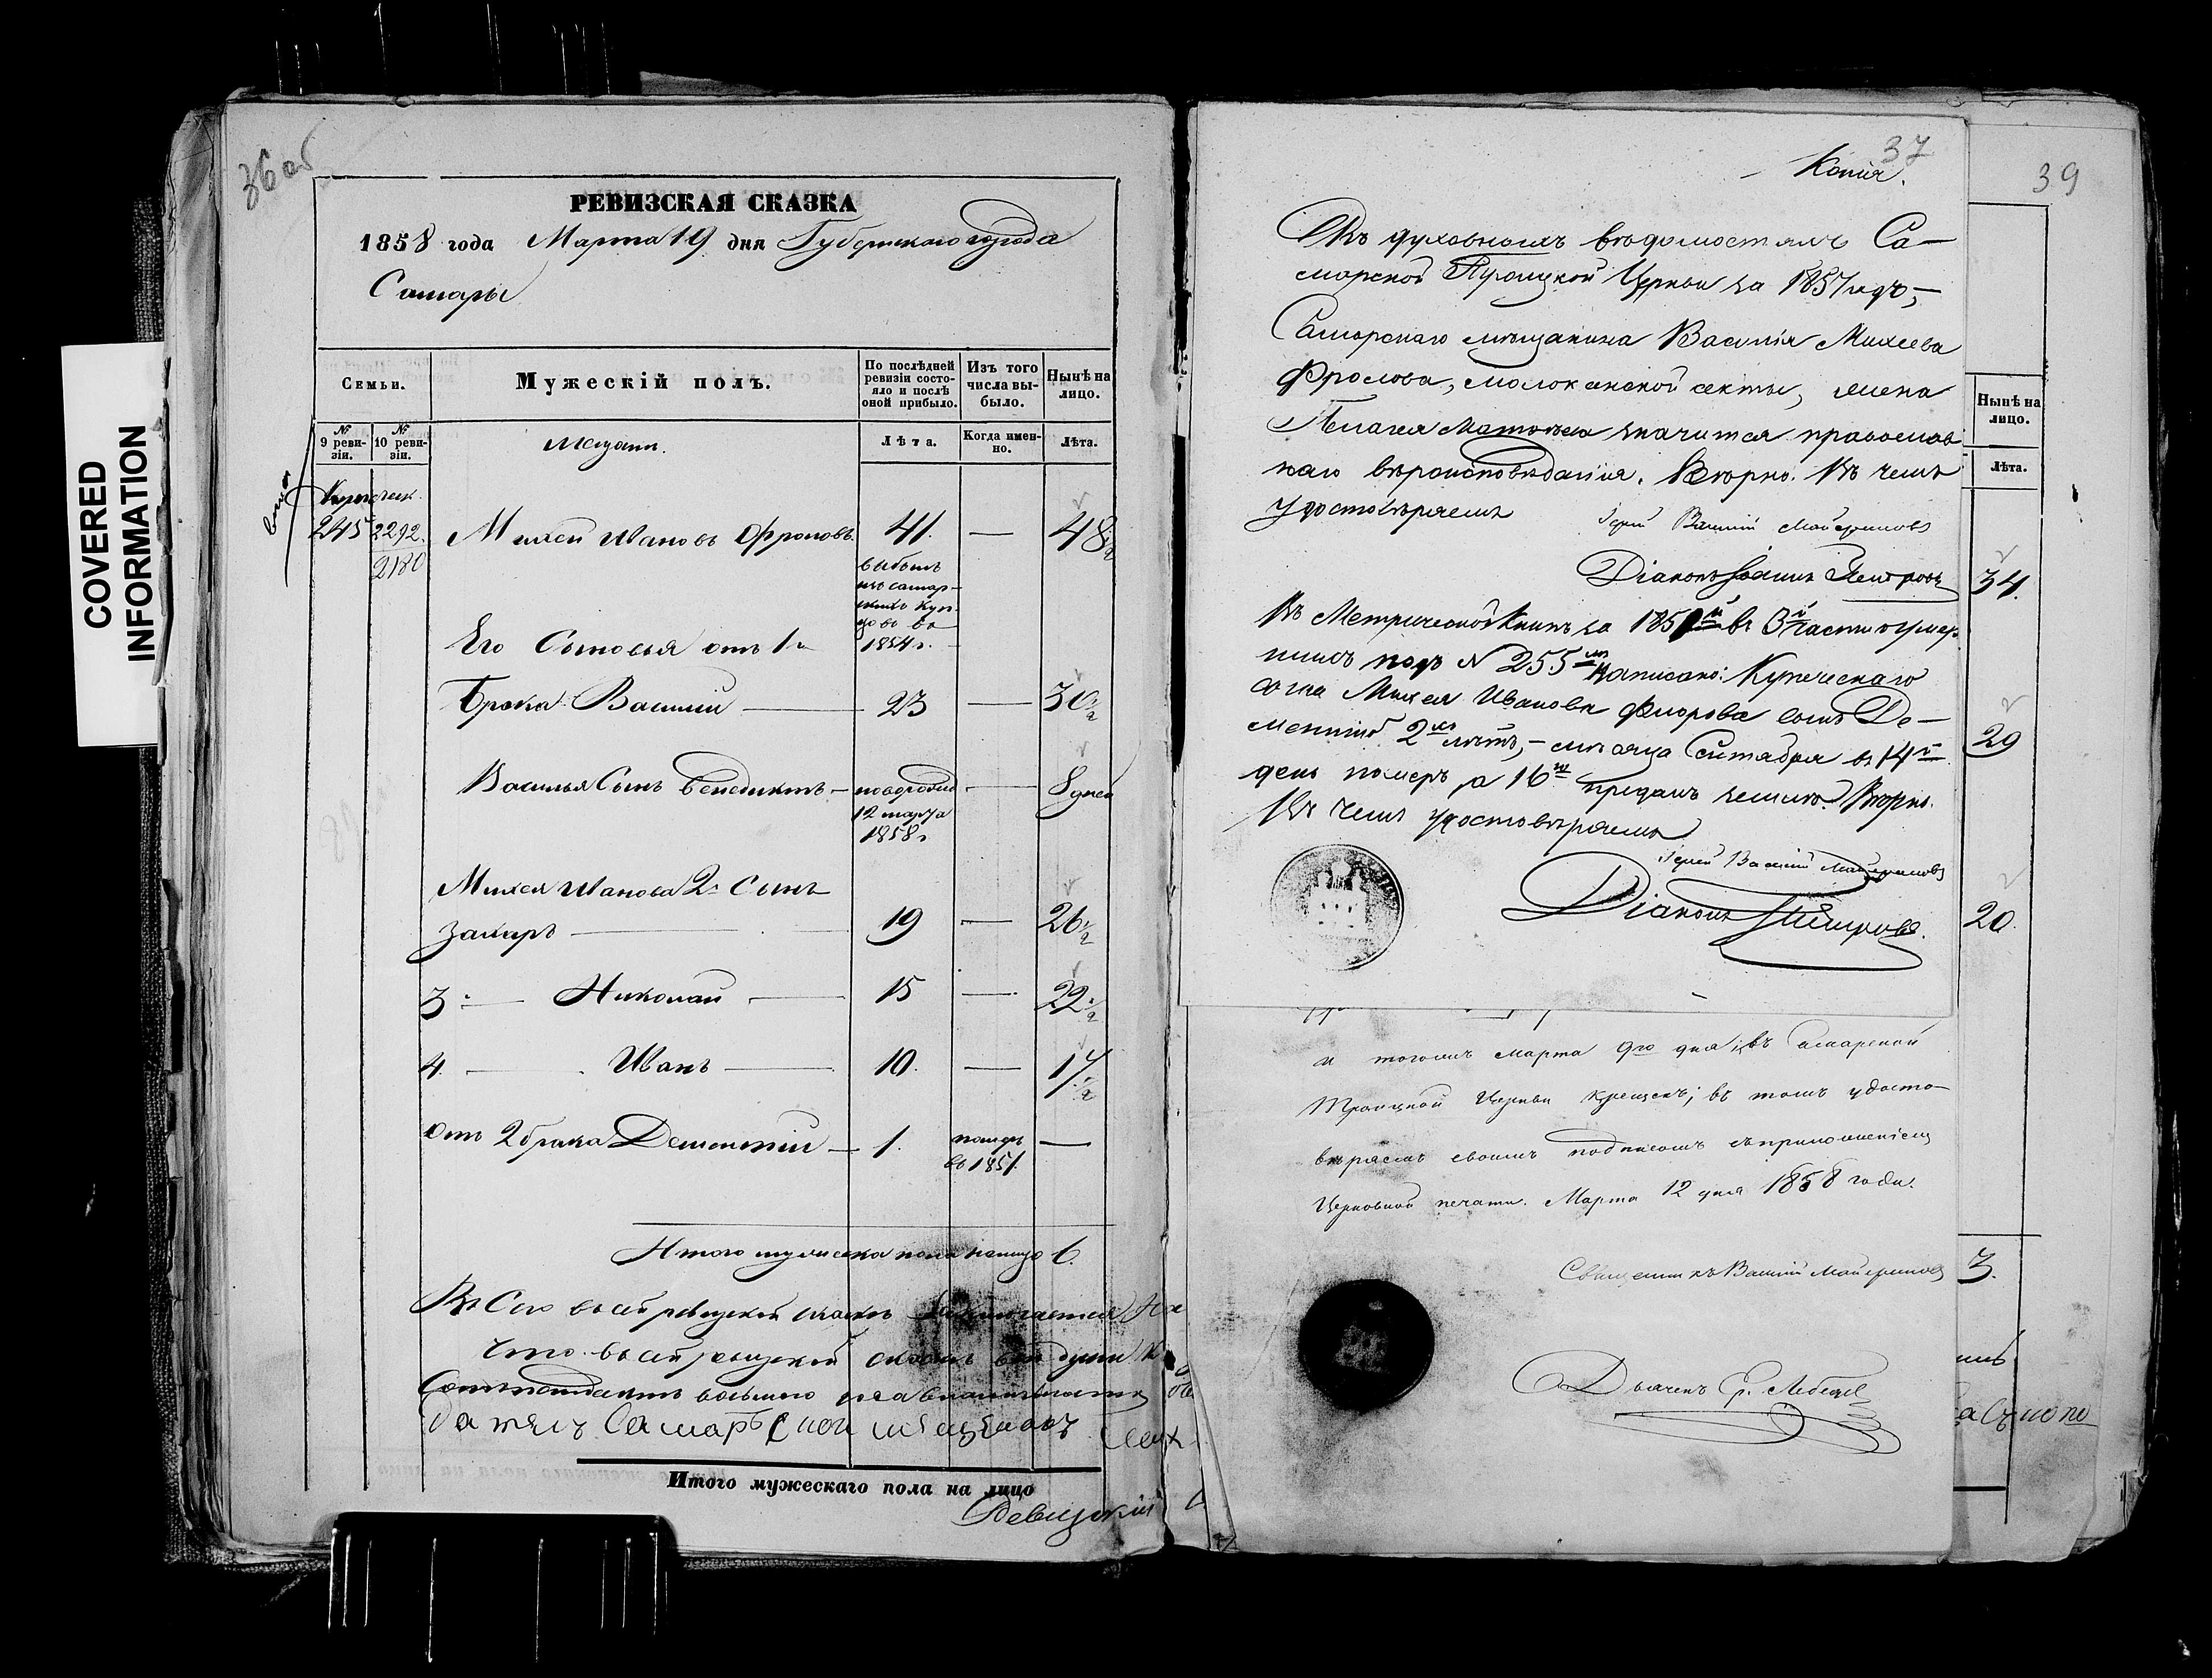 COVERED
INFORMATION
36 об
РЕВИЗСКАЯ СКАЗКА
1858 года Марта 19 дня Губернскаго города
Самары
Семьи.
Мужескій полъ.
По послѣдней ревизіи состояло и послѣ оной прибыло.
Изъ того числа выбыло.
Нынѣ на лицо.
№ 9 ревизіи.
№ 10 ревизіи.
Мещане.
Лѣта.
Когда именно.
Лѣта.
245
2292.
2180
Михей Ивановъ Фроловъ
41.
—
48½
выбылъ
изъ самар-
скихъ куп-
цовъ въ
1854 г.
Его Сыновья отъ 1го
брака Василій
23
—
30½
Васильа Сынъ Венедиктъ
новорожд
12 марта
1858 г
—
8 дней
Михея Иванова 2й Сынъ
Захаръ
19
—
26½
3 — Николай
15
—
22½
4. — Иванъ
10.
—
17½
Отъ 2 брака Дементій
1.
померъ
въ 1851.
—
Итого мужеска пола налицо 6.
Что въ сей ревизской сказкѣ все души
Итого мужескаго пола на лицо
37
Копія.
Въ духовныхъ вѣдомостяхъ Са-
марской Троицкой Церкви за 1857 годъ,
Самарскаго мѣщанина Василія Михеева
Фролова, молоканской секты, жена
значится православ
наго вѣроисповѣданія. Вѣрно. Въ чемъ
удостовѣряемъ
Іерей Василій
Діаконъ Іоаннъ Петровъ
Въ Метрической Книгѣ за 1851й въ 3й части о умер
шихъ подъ № 255мъ написано: Купеческаго
сына Михея Иванова Фролова сынъ Де-
ментій 2хъ лѣтъ, мѣсяца Сентября въ 14й
день померъ, а 16го преданъ землѣ. Вѣрно.
Въ чемъ удостовѣряемъ
Іерей Василій
Діаконъ Петровъ.
и тогоже марта 9го дня въ Самарской
Троицкой Церкви крещенъ; въ томъ удосто-
вѣряемъ своимъ подписомъ съ приложеніемъ
Церковной печати. Марта 12 дня 1858 года.
Священникъ Василій
39
Нынѣ на лицо.
Лѣта.
34.
29
20.
3.